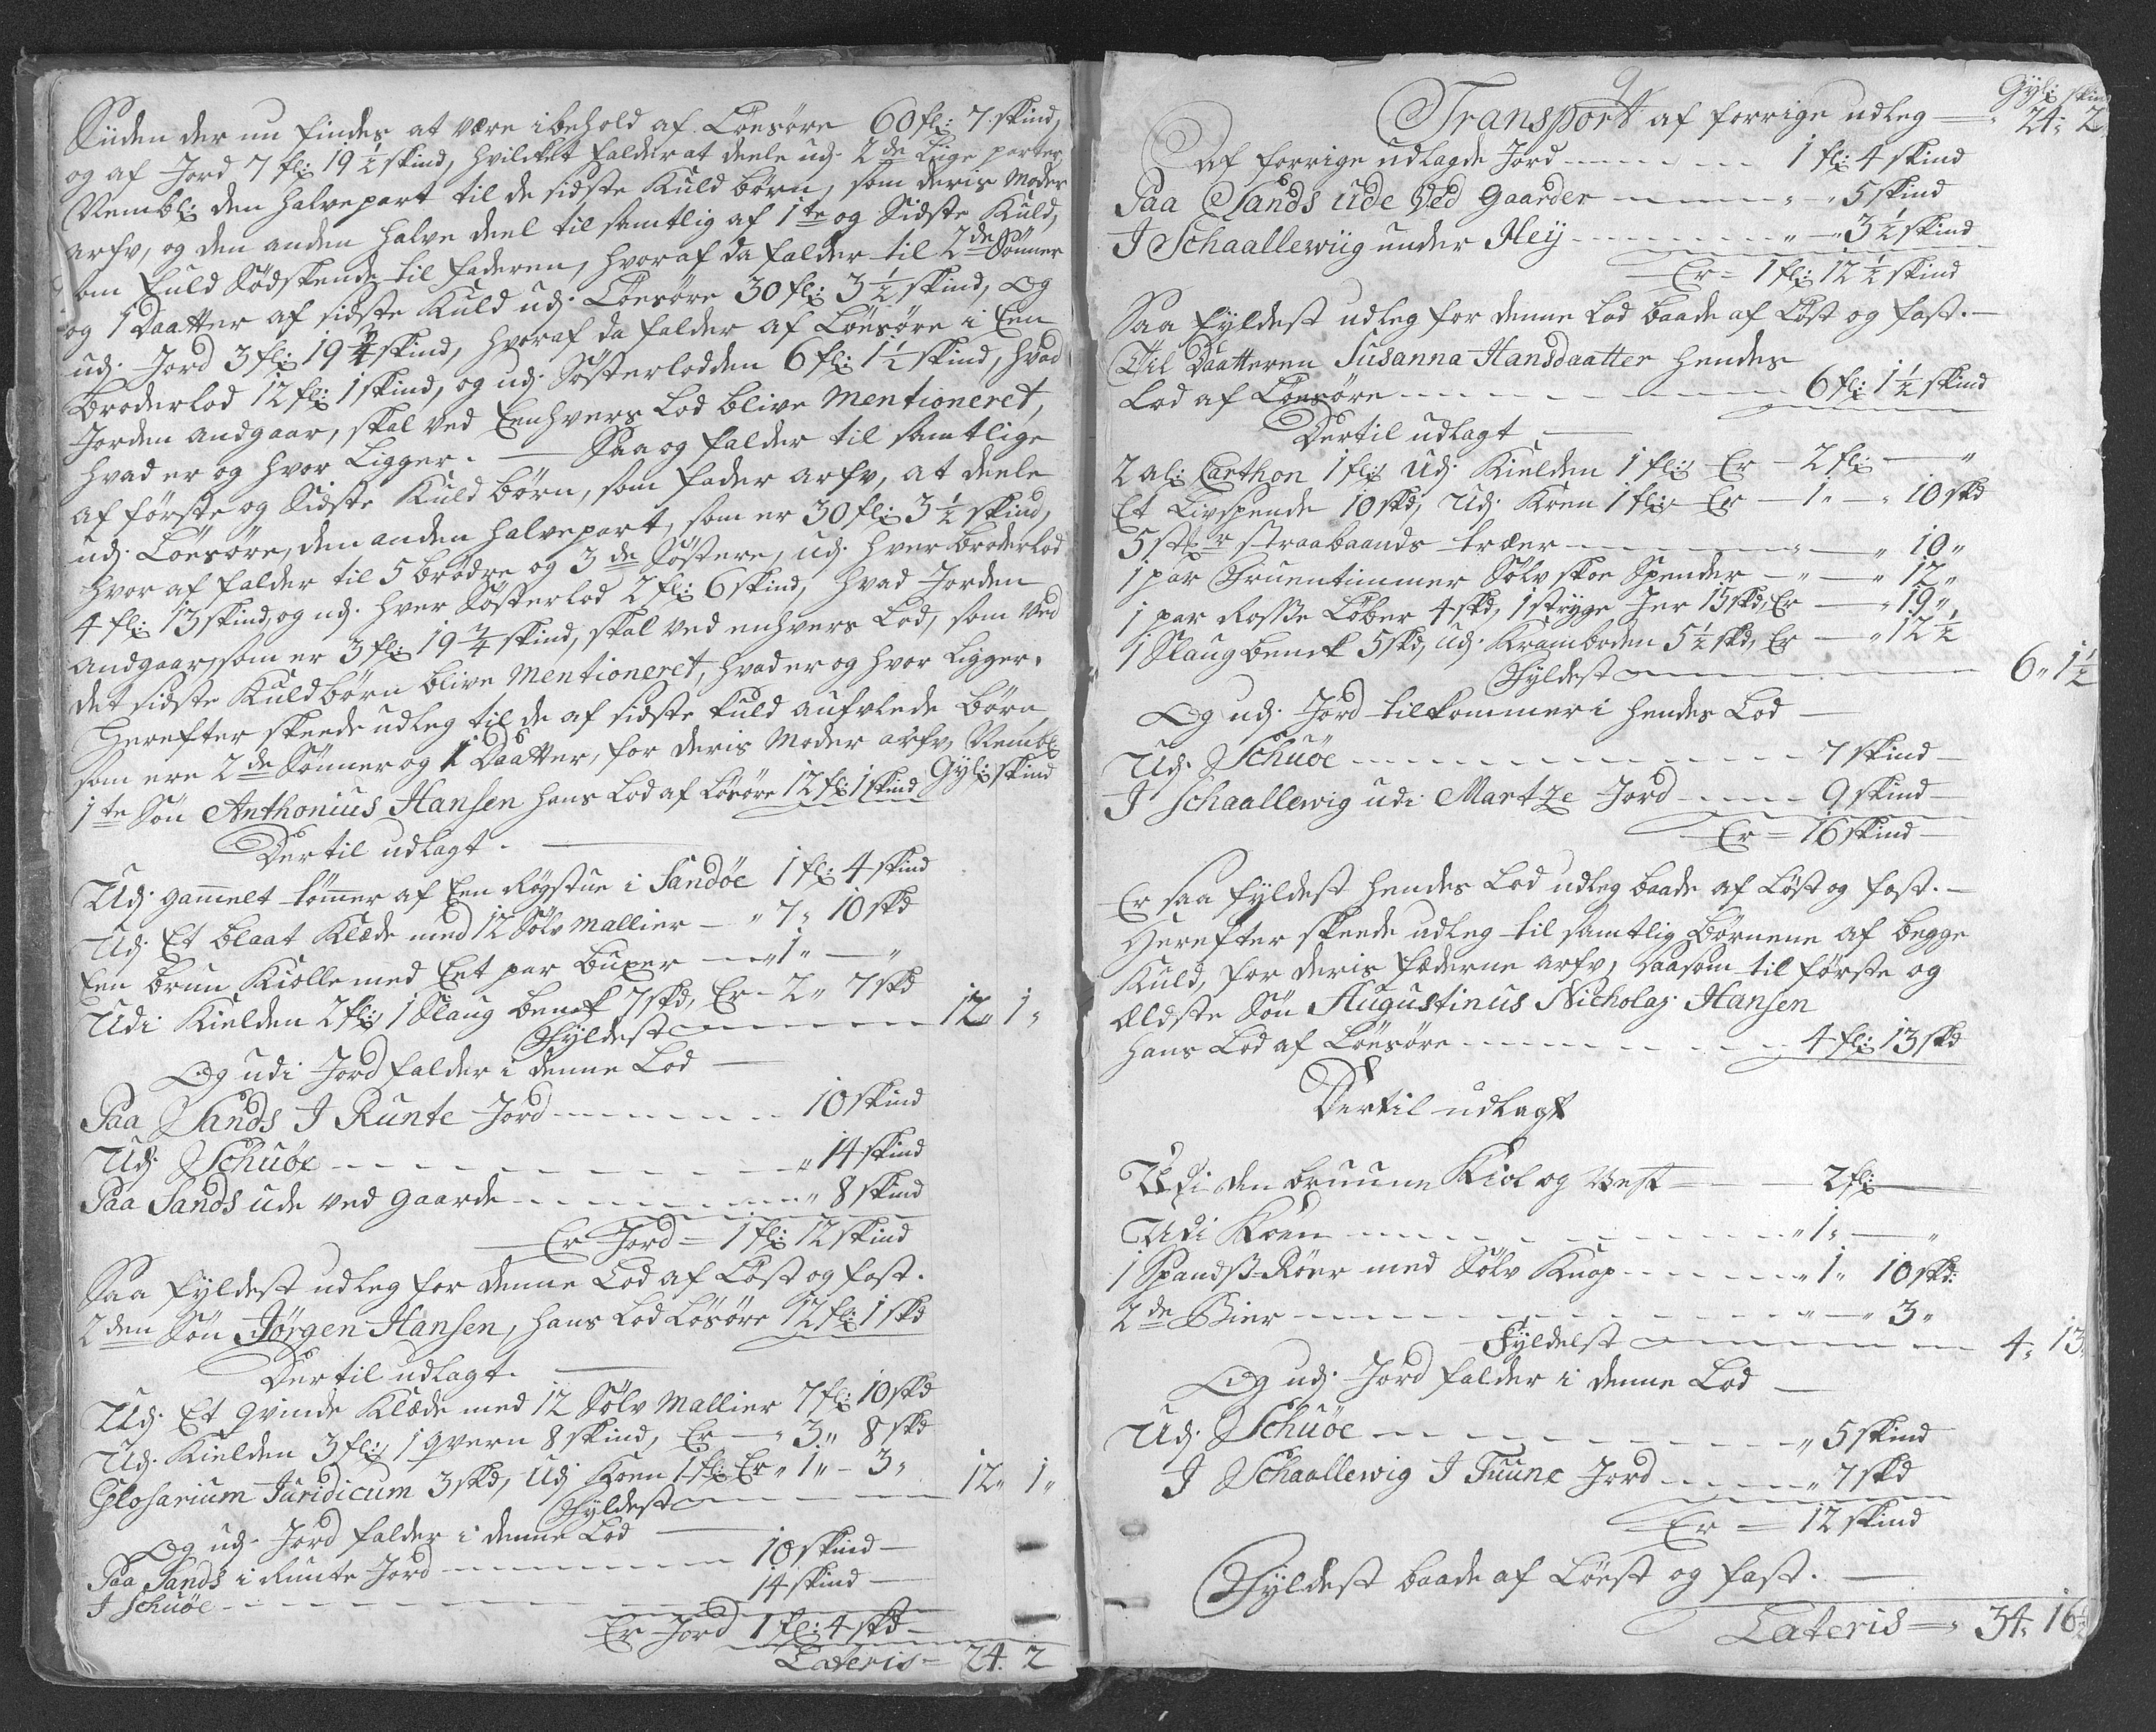 Siiden der nu findes at være i behold af Löesöre 60 fl: 7 skind,
og af Jord 7 fl: 19½ skind, hvilcket falder at deele udj 2de Lige parter
Nembl: den halvepart til de sidste Kuld börn, som deris Moder
arfv, og den anden halve deel til samtlig af 1te og Sidste Kuld,
som fuld Södskende til faderen, hvoraf da falder til 2de Sönner
og 1 Daatter af sidste Kuld udj Löesöre 30 fl: 3½ skind, Og
udj Jord 3 fl: 19¾ skind, hvoraf da falder af Löesöre i Een
Broderlod 12 fl: 1 skind, og udj Södsterlodden 6 fl: 1½ skind, hvad
Jorden andgaar, skal ved Eenhvers Lod blive Mentioneret,
hvad er og hvor Ligger. — Saa og falder til samtlige
af förste og Sidste Kuld börn, som fader arfv, at deele
udj Löesöre, den anden halvepart, som er 30 fl: 3½ skind,
hvor af falder til 5 brödre og 3de Söstere, udj hver broderlod
4 fl: 13 skind, og udj hver Sösterlod 2 fl: 6 skind, hvad Jorden
andgaar, som er 3 fl: 19¾ skind, skal ved enhvers Lod, som ved
det sidste Kuld börn blive Mentioneret, hvad er og hvor Ligger.
Herefter skeede udleg til de af sidste kuld aufvlede börn
som ere 2de Sönner og 1 Daatter, for deris Moder arfv, Nembl:
1te Sön Anthonius Hansen hans Lod af Lösöre 12 fl: 1 skind Gyl: skind
Dertil udlagt. —
Udj gammelt tömmer af Een Röystue i Sandöe 1 fl: 4 skind
Udj Et blaat Klæde med 12 Sölv Mallier — " 7 " 10 skd
Een brun Kiolle med Eet par buxer — " 1 " — "
Udi Kielden 2 fl:, 1 Slaug benck 7 skd, Er - 2 " 7 skd
Fyldest — 12 " 1 "
Og udi Jord falder i denne Lod —
Paa Sands I Runte Jord — 10 skind
Udj Schuöe — " 14 skind
Paa Sands ude ved gaarde — " 8 skind
Er Jord = 1 fl: 12 skind
Saa fyldest udleg for denne Lod af Löst og fast.
2den Sön Jörgen Hansen, hans Lod Lösöre 12 fl: 1 skd
Dertil udlagt. —
Udj Et qvinde Klæde med 12 Sölv Mallier 7 fl: 10 skd
Udj Kielden 3 fl:, 1 qvern 8 skind, Er — " 3 " 8 skd
Glosarium Juridicum 3 skd, Udj Koen 1 fl: Er " 1 " - 3 "
Fyldest — 12 " 1 "
Og udj Jord falder i denne Lod —
Paa Sands i Runte Jord — 10 skind —
I Schuöe — 14 skind —
Er Jord 1 fl: 4 skd —
Lateris = 24. 2
Gyl: skind
Transport af forrige udleg — 24 " 2
Af forrige udlagde Jord — 1 fl: 4 skind
Paa Sands ude ved gaarder — " — " 5 skind
I Schaallewiig under Heij — " — " 3½ skind
Er = 1 fl: 12½ skind
Saa fyldest udleg for denne Lod baade af Löst og fast. —
Til Daatteren Susanna Hansdaatter hendes
Lod af Löesöre — 6 fl: 1½ skind
Dertil udlagt —
2 al: Carthon 1 fl: Udj Kielden 1 fl: Er — 2 fl: — "
Et Livspende 10 skd, Udj Koen 1 fl: Er — 1 " — " 10 skd
5 stk straabaands træer — " — " 10 "
1 par Fruentimmer Sölv skoe Spender — " — " 17 "
1 par Rosse Löber 4 skd, 1 stryge Jer 15 skd, Er — " 19 "
1 Slaug benck 5 skd, Udj Kramboden 5½ skd, Er — " 12½
Fyldest — 6 " 1½
Og udj Jord tilkommer i hendes Lod —
Udj Schuöe — 7 skind —
I Schaallewig udi Martze Jord — 9 skind —
Er = 16 skind —
Er saa fyldest hendes Lod udleg baade af Löst og fast. —
Herefter skeede udleg til samtlig Börnene af begge
Kuld, for deris fæderne arfv, saasom til förste og
Ældste Sön Augustinus Nicholaj Hansen
hans Lod af Löesöre — 4 fl: 13 skd
Dertil udlagt
Udi den bruune Kiol og Vest — 2 fl: —
Udi Koen — " 1 " — "
1 Spandsk-Röer med Sölv Knap — " 1 " 10 skd:
2de Bier — " — " 3 "
Fyldest — 4 " 13 "
Og udj Jord falder i denne Lod —
Udj Schuöe — " 5 skind
I Schaallewig I Tuune Jord — " 7 skd
Er = 12 skind
Fyldest baade af Löest og fast. —
Lateris = 34 " 16½